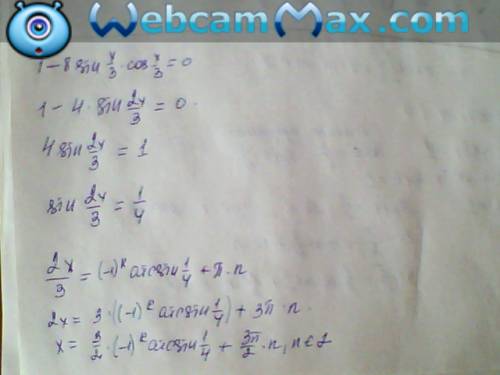 WebcamMax.com
1 - 8 sin x/3 · cos x/3 = 0
1 - 4 · sin 2x/3 = 0.
4 sin 2x/3 = 1
sin 2x/3 = 1/4
2x/3 = (-1)^k arcsin 1/4 + π · n
2x = 3 · ((-1)^k arcsin 1/4) + 3π · n.
x = 3/2 · (-1)^k arcsin 1/4 + 3π/2 · n, n ∈ Z